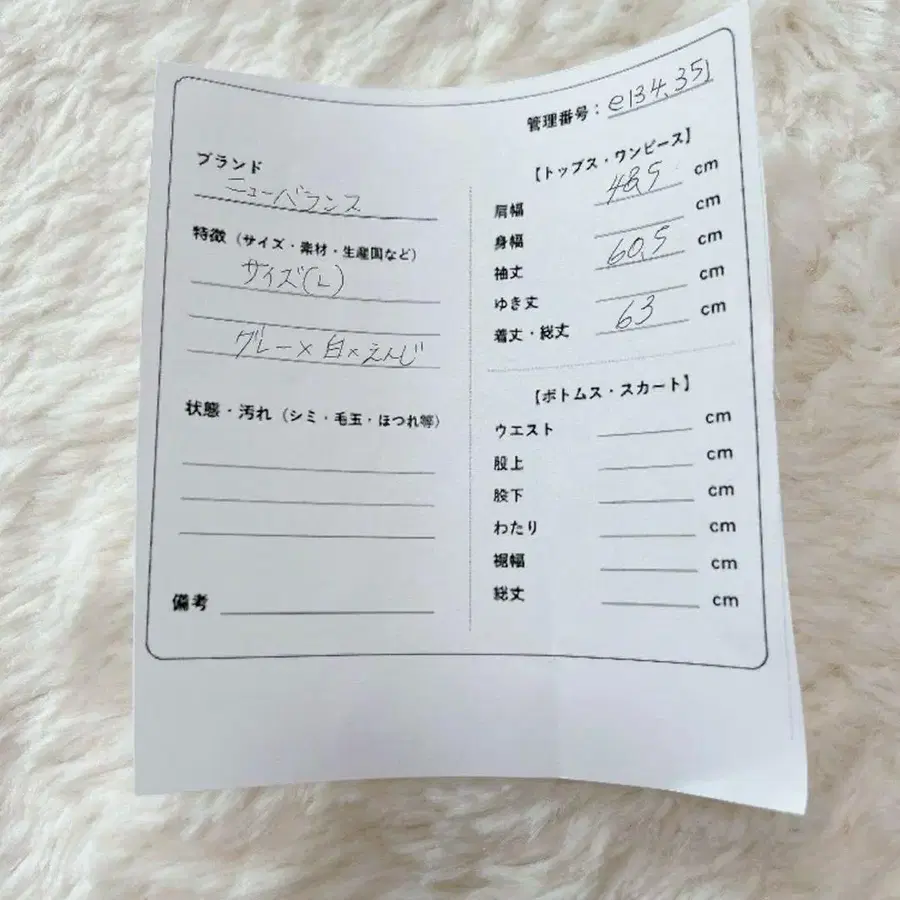 管理番号：e134,351
ブランド
ニューバランス
特徴（サイズ・素材・生産国など）
サイズ(L)
グレー×白×えんじ
状態・汚れ（シミ・毛玉・ほつれ等）
備考
【トップス・ワンピース】
肩幅 48,5 cm
身幅 cm
袖丈 60,5 cm
ゆき丈 cm
着丈・総丈 63 cm
【ボトムス・スカート】
ウエスト cm
股上 cm
股下 cm
わたり cm
裾幅 cm
総丈 cm